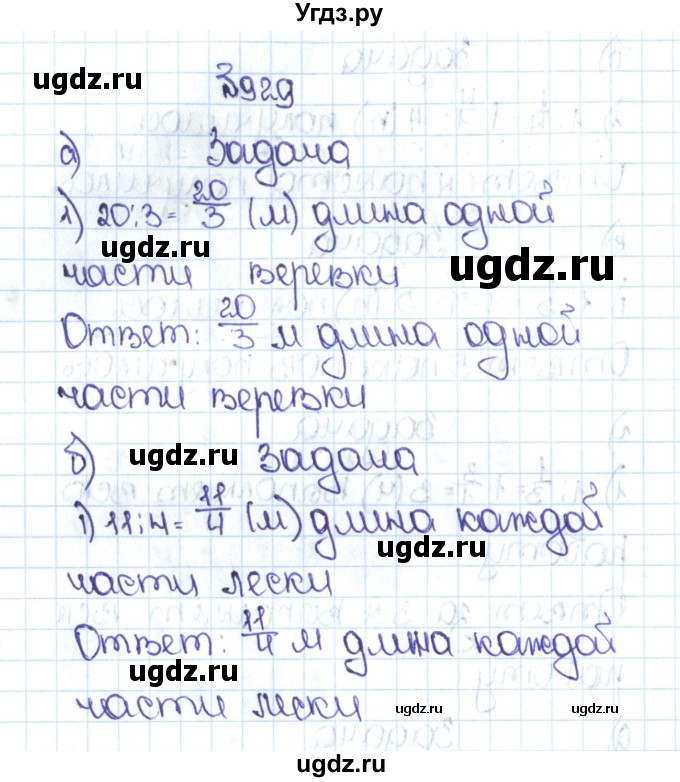 Угдз.ру
ugdz.ru
№929
а) Задача
ugdz.ru
1) 20:3=20/3 (м) длина одной
ugdz.ru
части веревки
ugdz.ru
Ответ: 20/3 м длина одной
части веревки
ugdz.ru
б) Задача
ugdz.ru
1) 11:4=11/4 (м) длина каждой
ugdz.ru
части лески
Ответ: 11/4 м длина каждой
ugdz.ru
части лески
ugdz.ru
ugdz.ru
ugdz.ru